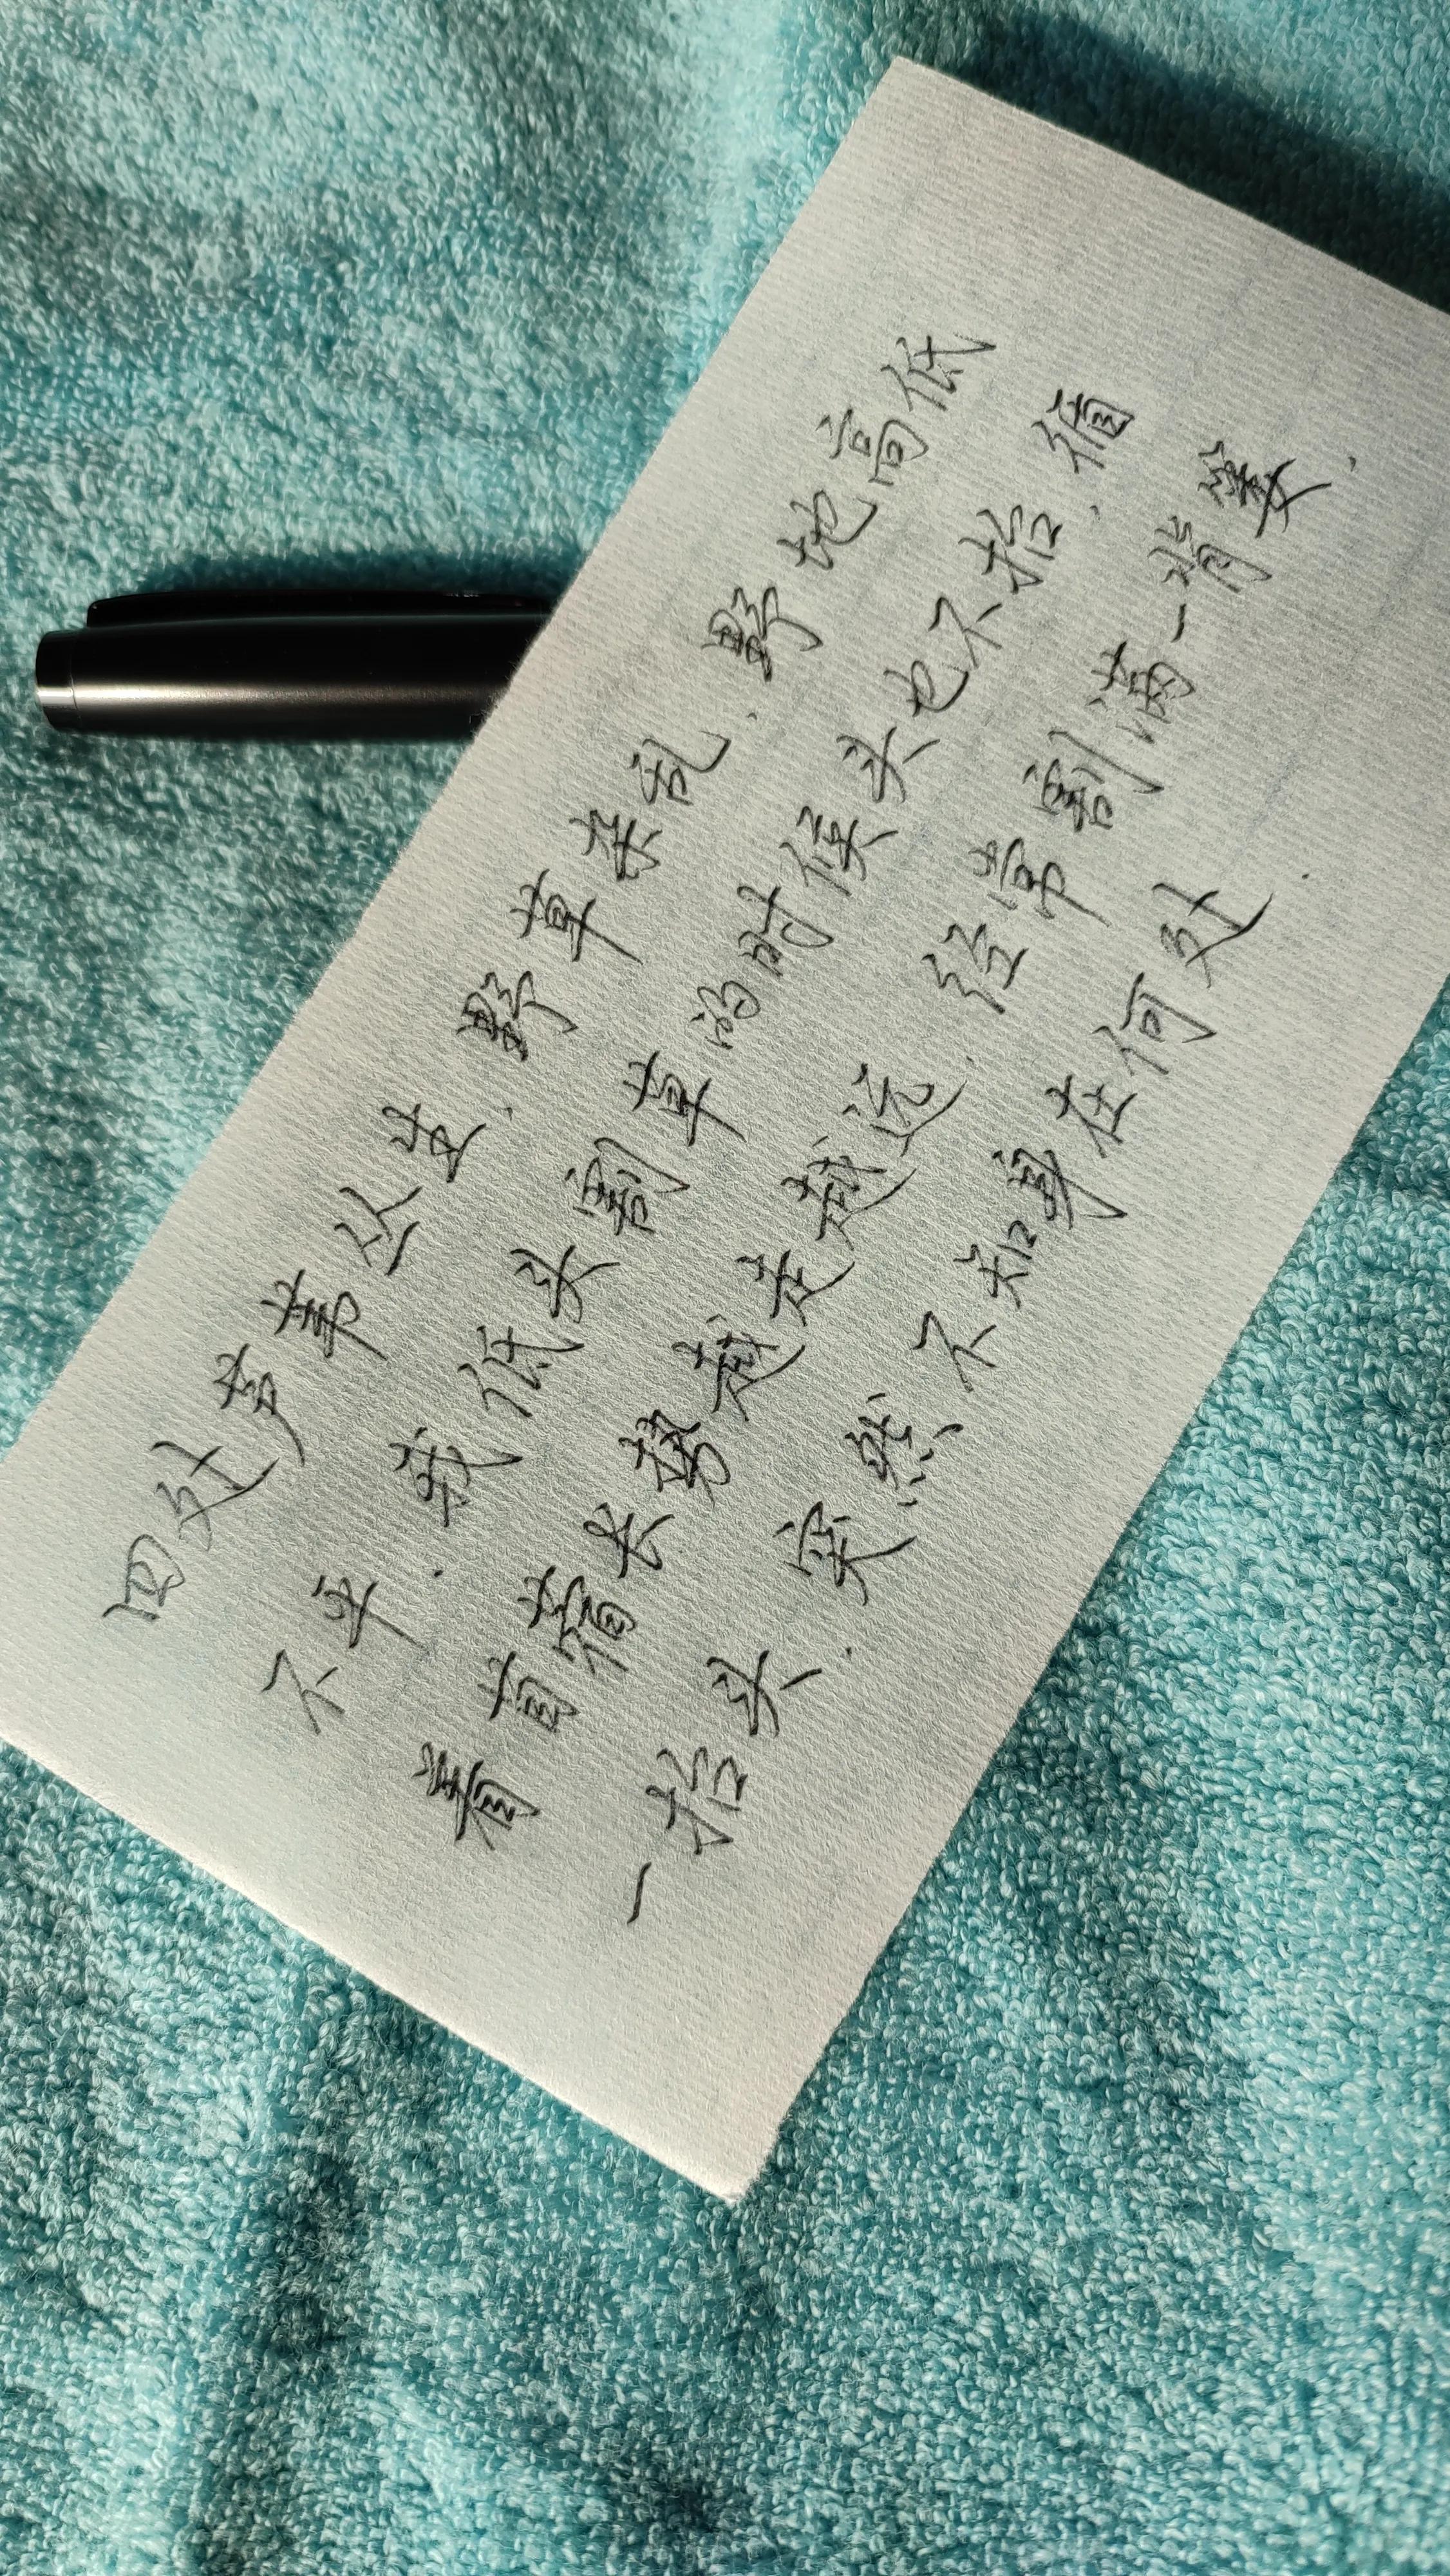 四处芦苇丛生,野草杂乱,野地高低
不平.我低头割草的时候头也不抬,循
着苜蓿长势越走越远,经常割满一背篓,
一抬头,突然不知身在何处.